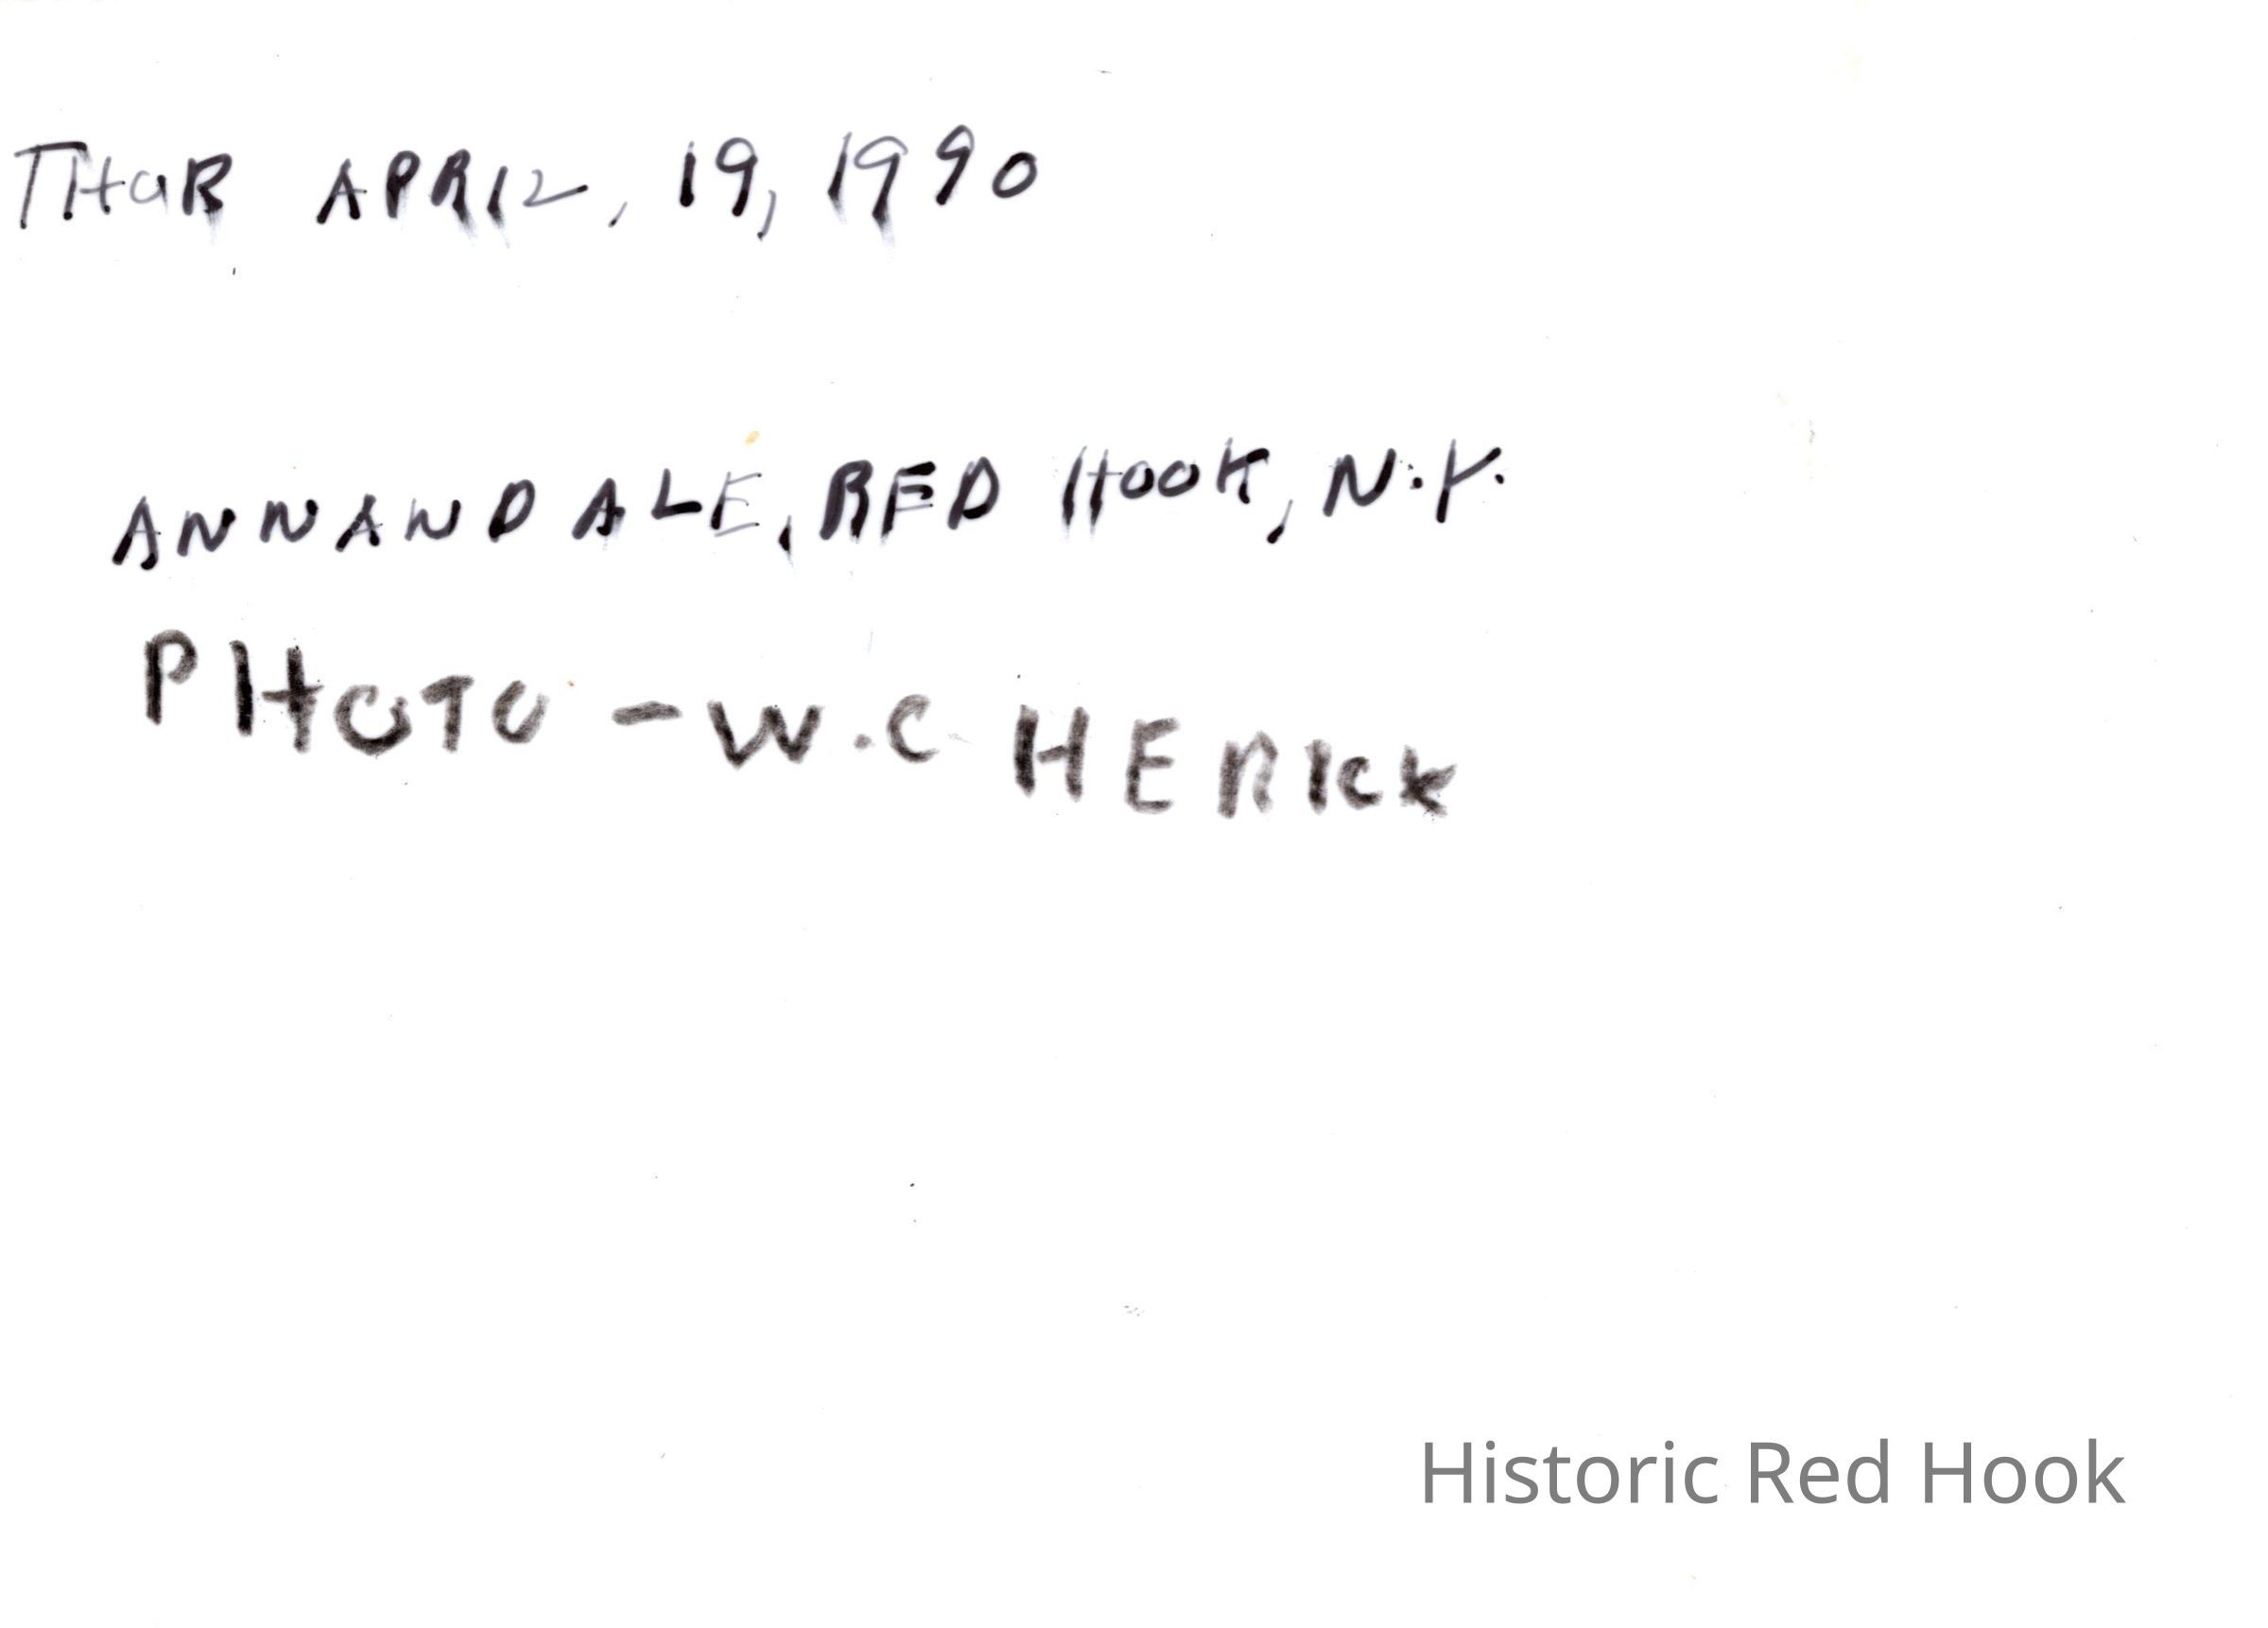 THUR APRIL, 19, 1990
ANNANDALE, RED HOOK, N.Y.
PHOTO - W.C HERICK
Historic Red Hook